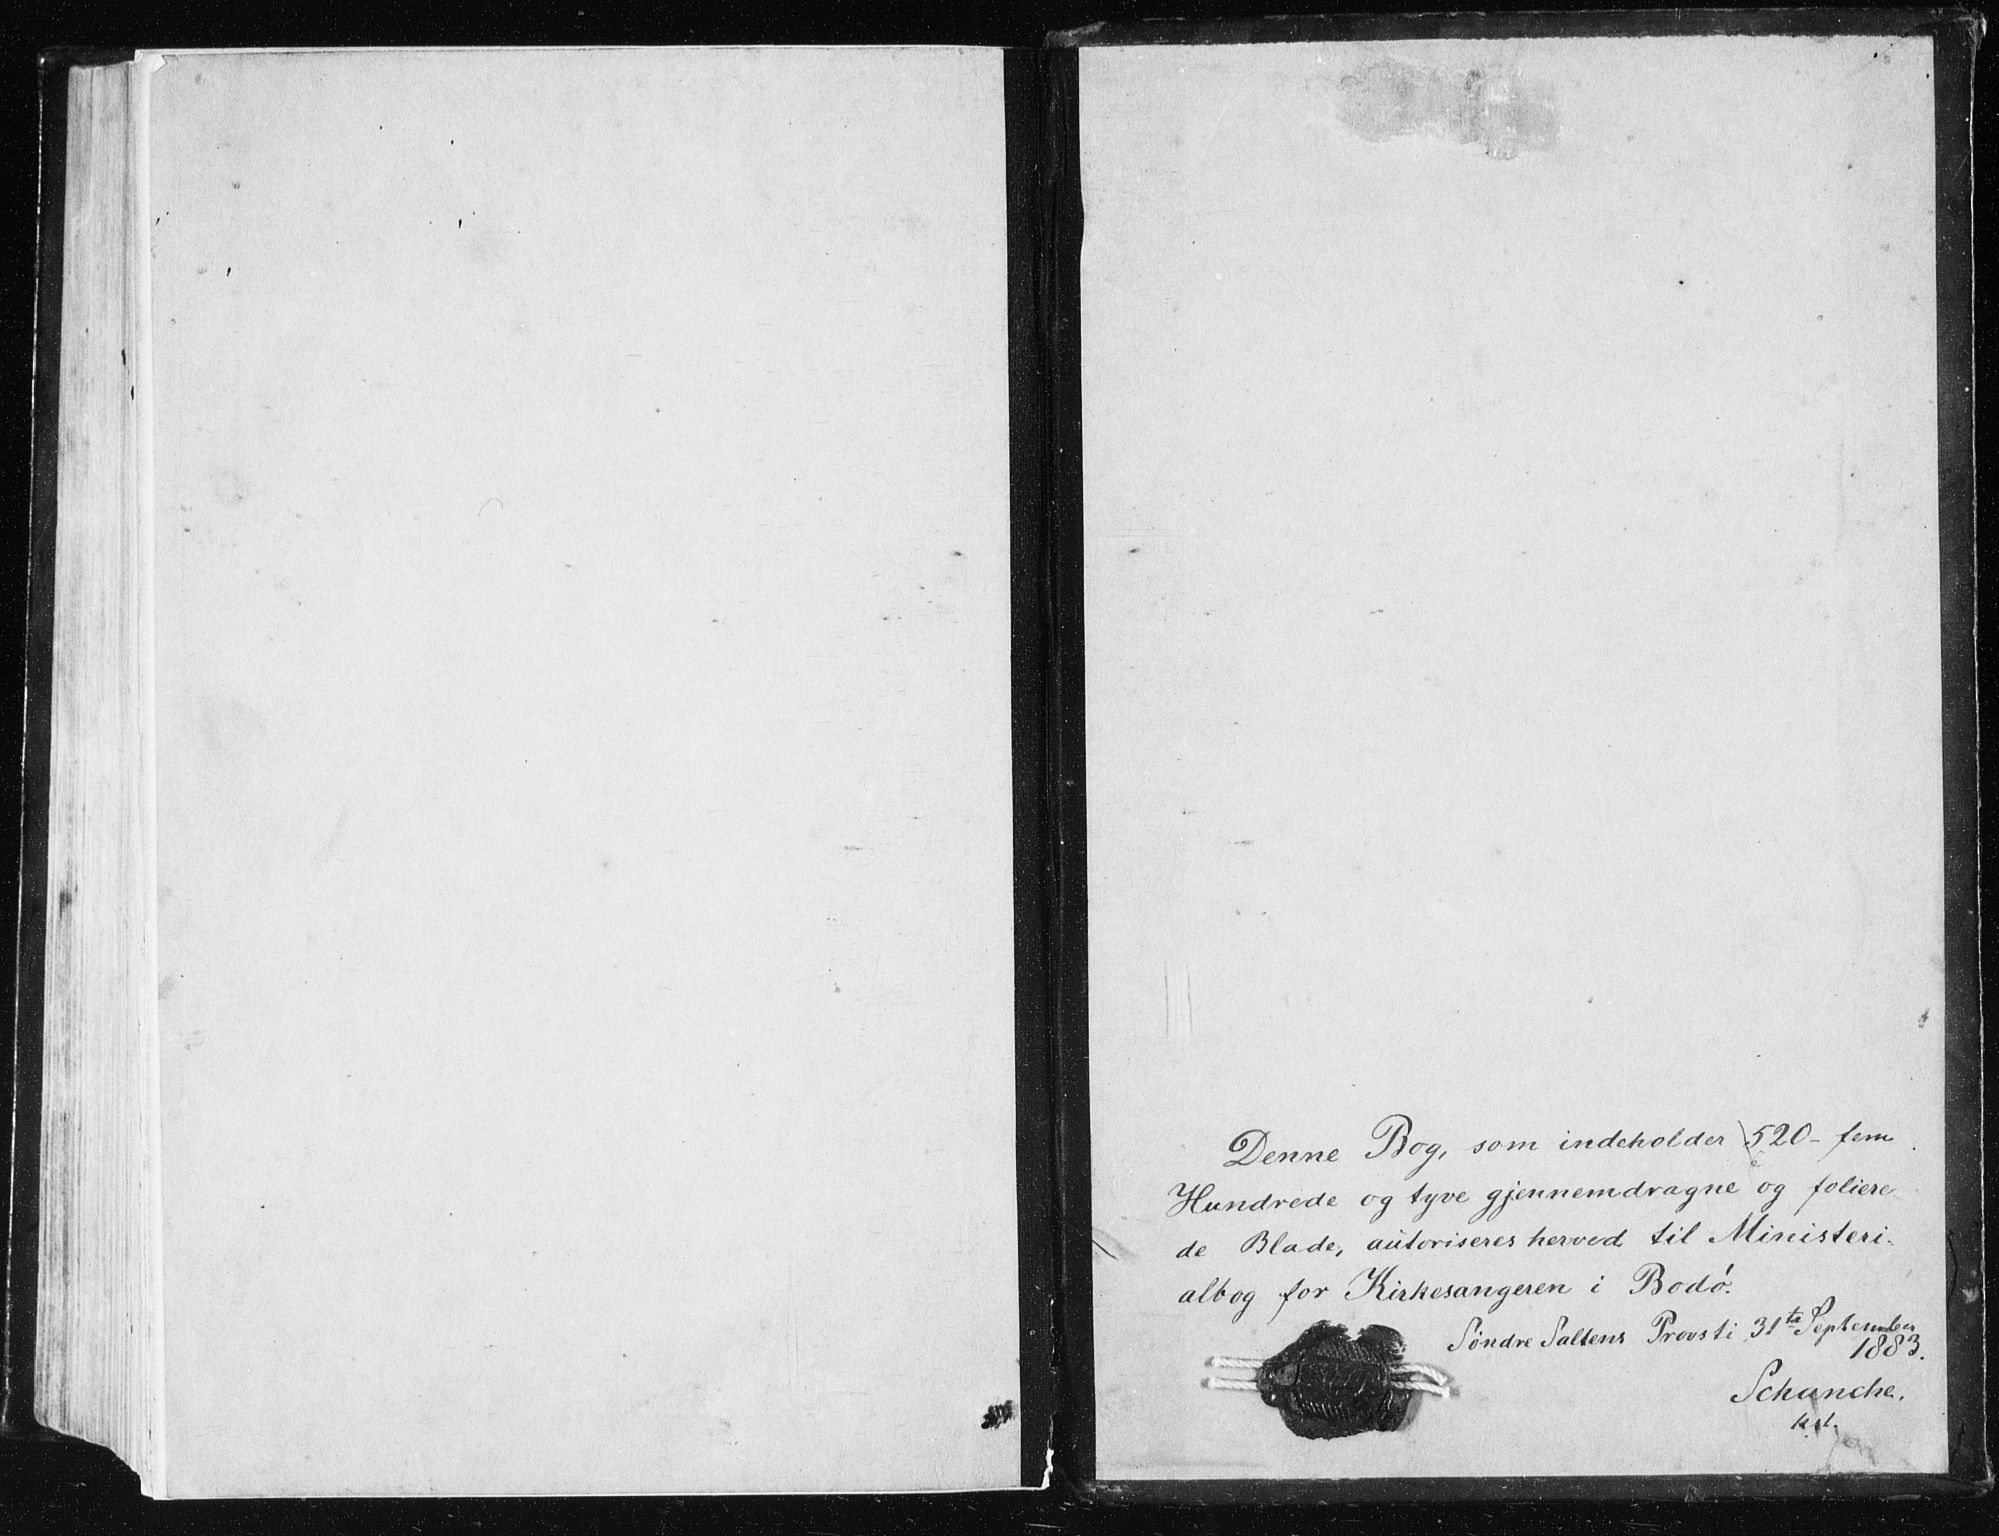 Denne Bog, som indeholder 520 - fem
Hundrede og tyve gjennemdragne og foliere
de Blade, autoriseres herved til Ministeri-
albog for Kirkesangeren i Bodø.
Søndre Saltens Provsti 31te September
1883.
Schanche.
kst.